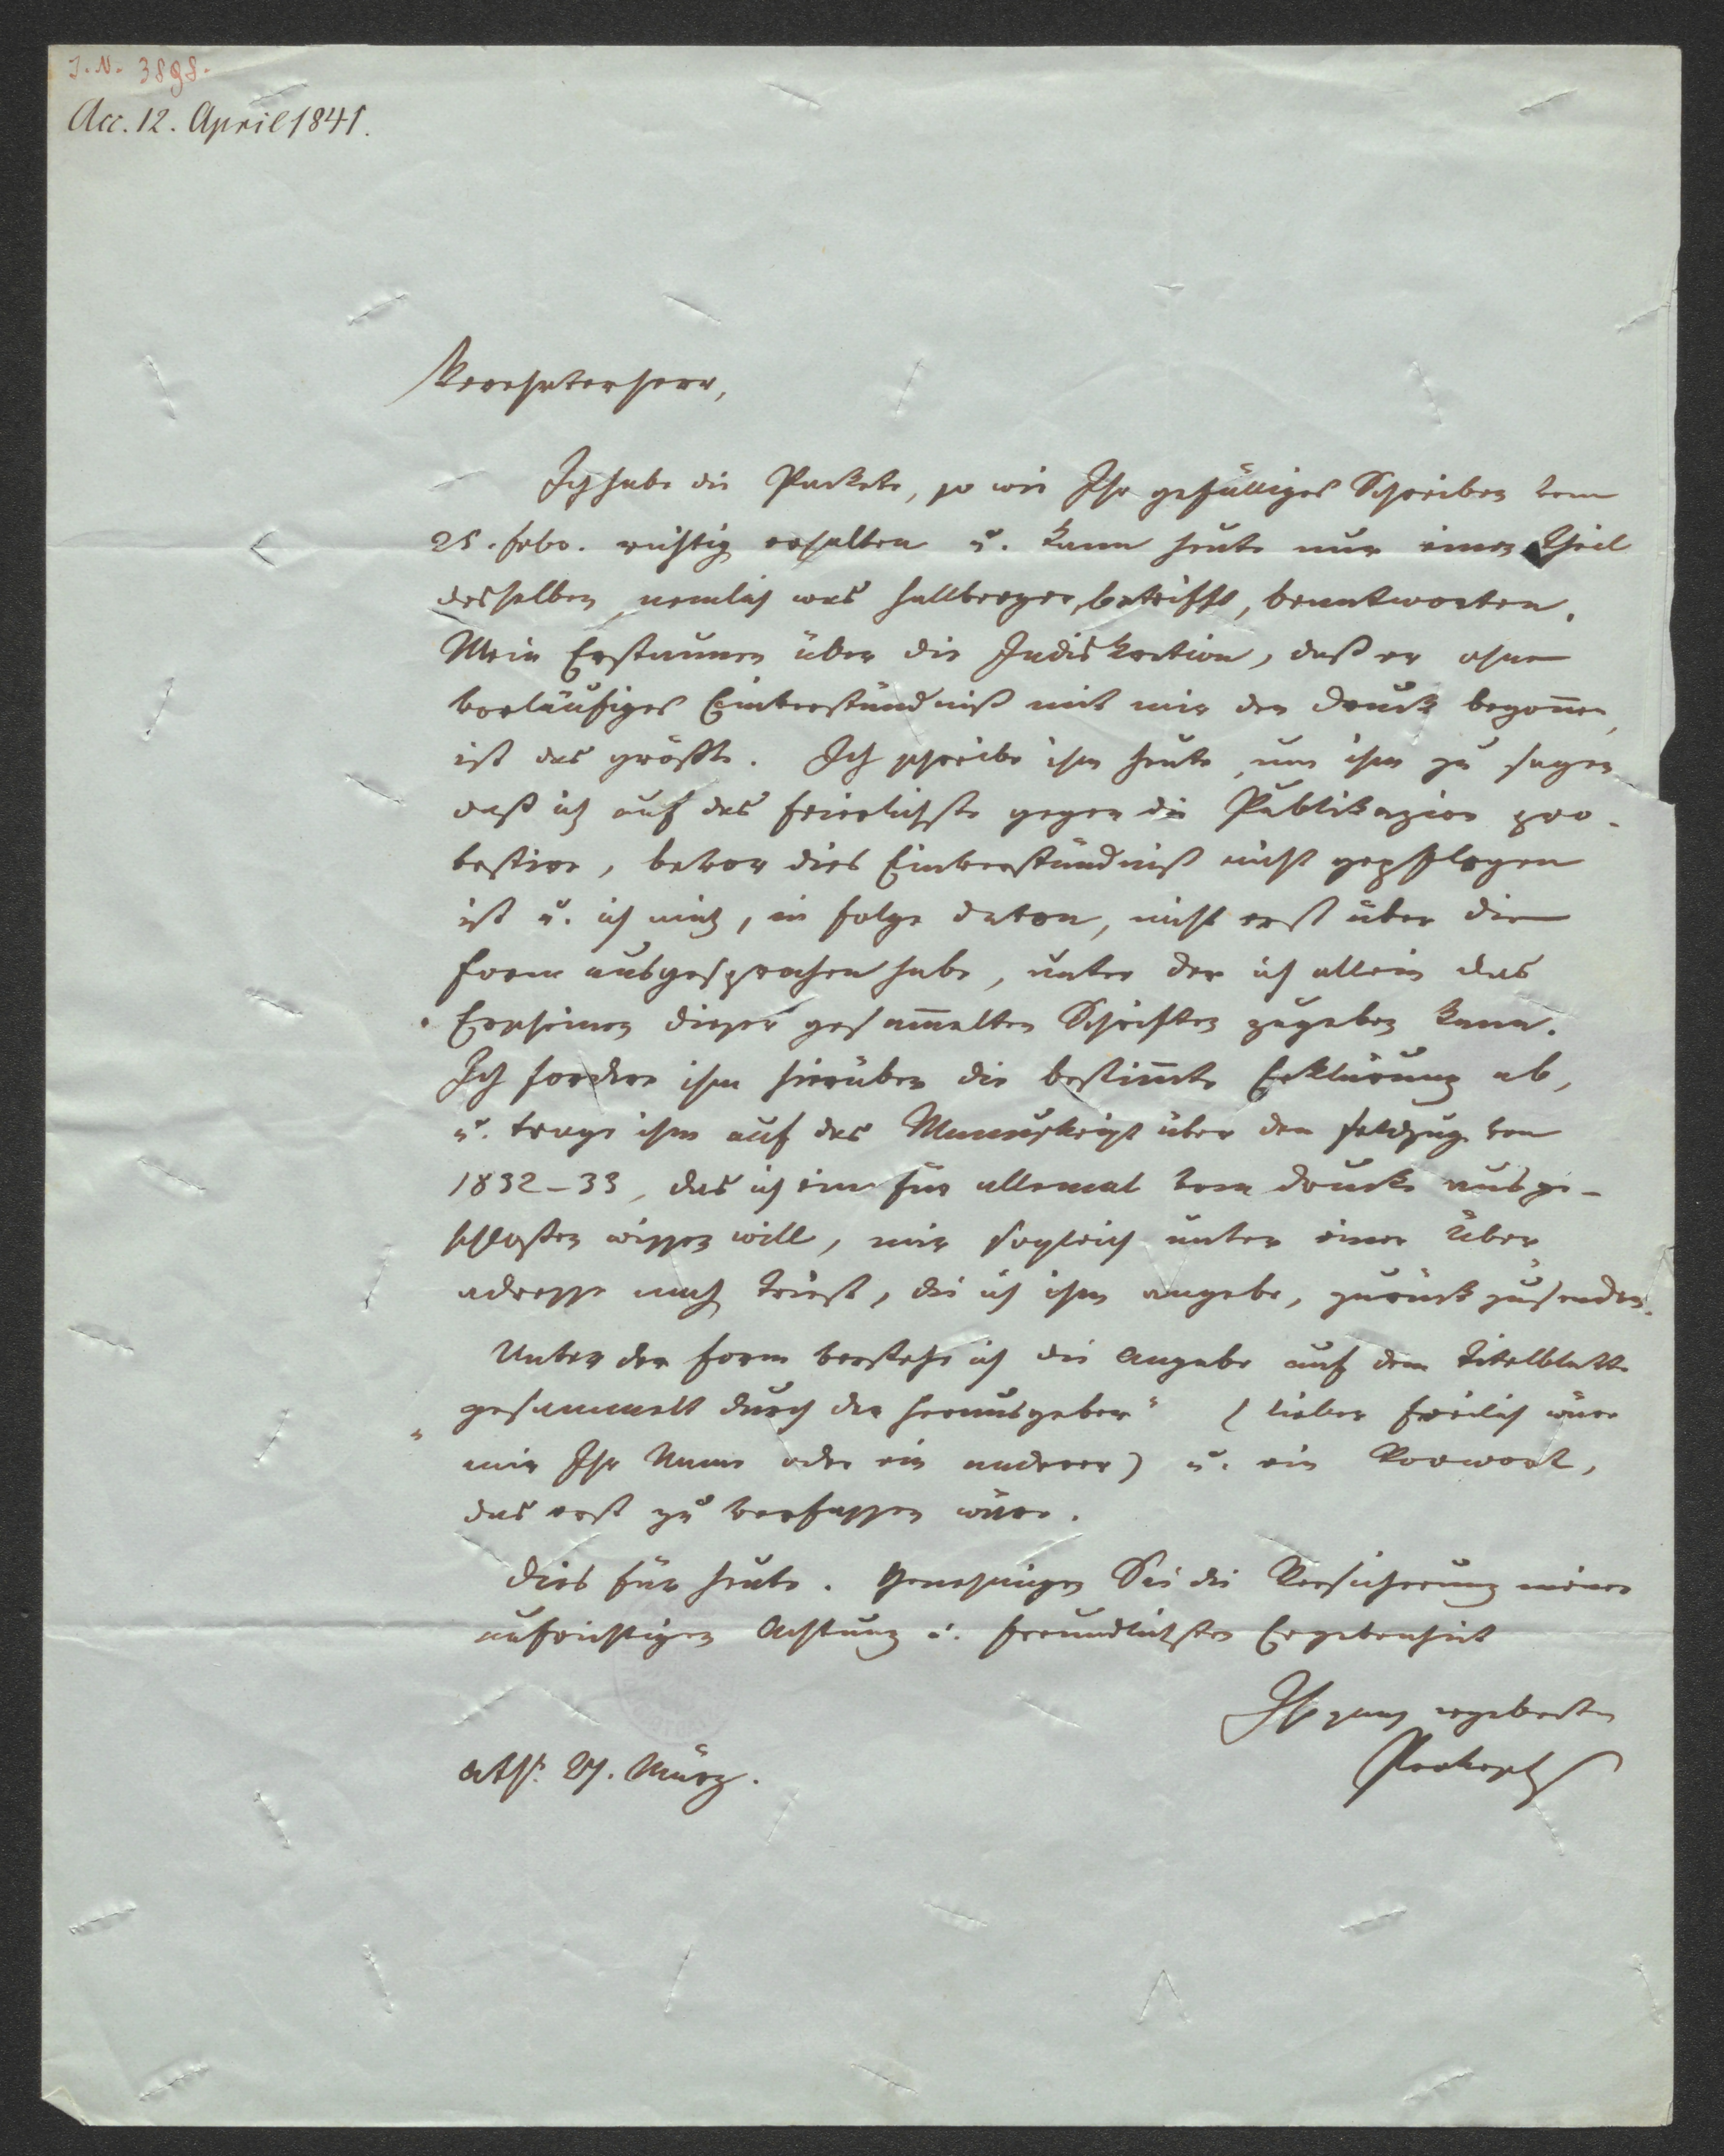 J. N. 3898.
Acc. 12. April 1841.
Verehrter Herr,
Ich habe die Packete, so wie Ihr gefälliges Schreiben vom
25. Febr. richtig erhalten u. kann heute nur einen Theil
desselben, nemlich was Hallberger betrifft, beantworten.
Mein Erstaunen über die Indiskretion, daß er ohne
vorläufiges Einverständniß mit mir den Druck begoñen,
ist das größte. Ich schreibe ihm heute, um ihm zu sagen
daß ich auf das feierlichste gegen die Publikazion pro-
testire, bevor dies Einverständniß nicht gepflogen
ist u. ich mich, in Folge davon, nicht erst über die
Form ausgesprochen habe, unter der ich allein das
Erscheinen dieser gesam̄elten Schriften zugeben kann.
Ich fordere ihm hierüber die bestim̄te Erklärung ab,
u. trage ihm auf das Manuskript über den Feldzug von
1832–33, das ich ein für allemal vom Drucke ausge-
schlossen wissen will, mir sogleich unter einer Über-
adresse nach Triest, die ich ihm angebe, zurückzusenden.
Unter der Form verstehe ich die Angabe auf dem Titelblatte
„gesammelt durch den Herausgeber“ (lieber freilich wäre
mir Ihr Name oder ein anderer) u. ein Vorwort,
das erst zu verfassen wäre.
Dies für heute. Genehmigen Sie die Versicherung meiner
aufrichtigen Achtung u. freundlichsten Ergebenheit
Ihr ganz ergebenster
Prokesch
Ath. 27. März.